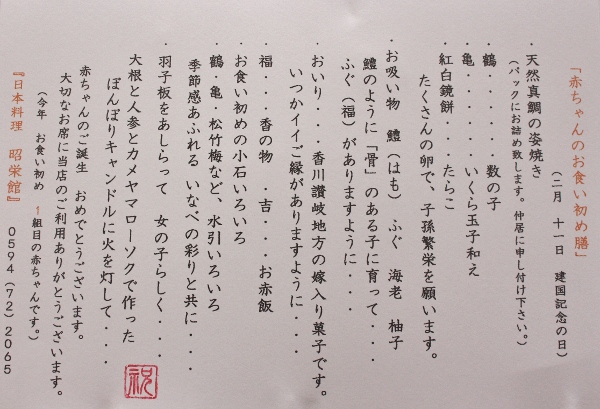 「赤ちゃんのお食い初め膳」
(二月 十一日 建国記念の日)
・天然真鯛の姿焼き
(パックにお詰め致します。仲居に申し付け下さい。)
・鶴・・・・・・数の子
・亀・・・・・・いくら玉子和え
・紅白鏡餅・・・たらこ
たくさんの卵で、子孫繁栄を願います。
・お吸い物 鱧(はも) ふぐ 海老 柚子
鱧のように「骨」のある子に育って・・・・
ふぐ(福)がありますように・・・・
・おいり・・・香川讃岐地方の嫁入り菓子です。
いつかイイご縁がありますように・・・・
・福・・・香の物 吉・・・お赤飯
・お食い初めの小石いろいろ
・鶴・亀・松竹梅など、水引いろいろ
季節感あふれる いなべの彩りと共に・・・・
・羽子板をあしらって 女の子らしく・・・・
大根と人参とカメヤマローソクで作った
ぼんぼりキャンドルに火を灯して・・・・
赤ちゃんのご誕生 おめでとうございます。
大切なお席に当店のご利用ありがとうございます。
(今年 お食い初め 1組目の赤ちゃんです。)
『日本料理 昭栄館』 0594(72)2065
祝